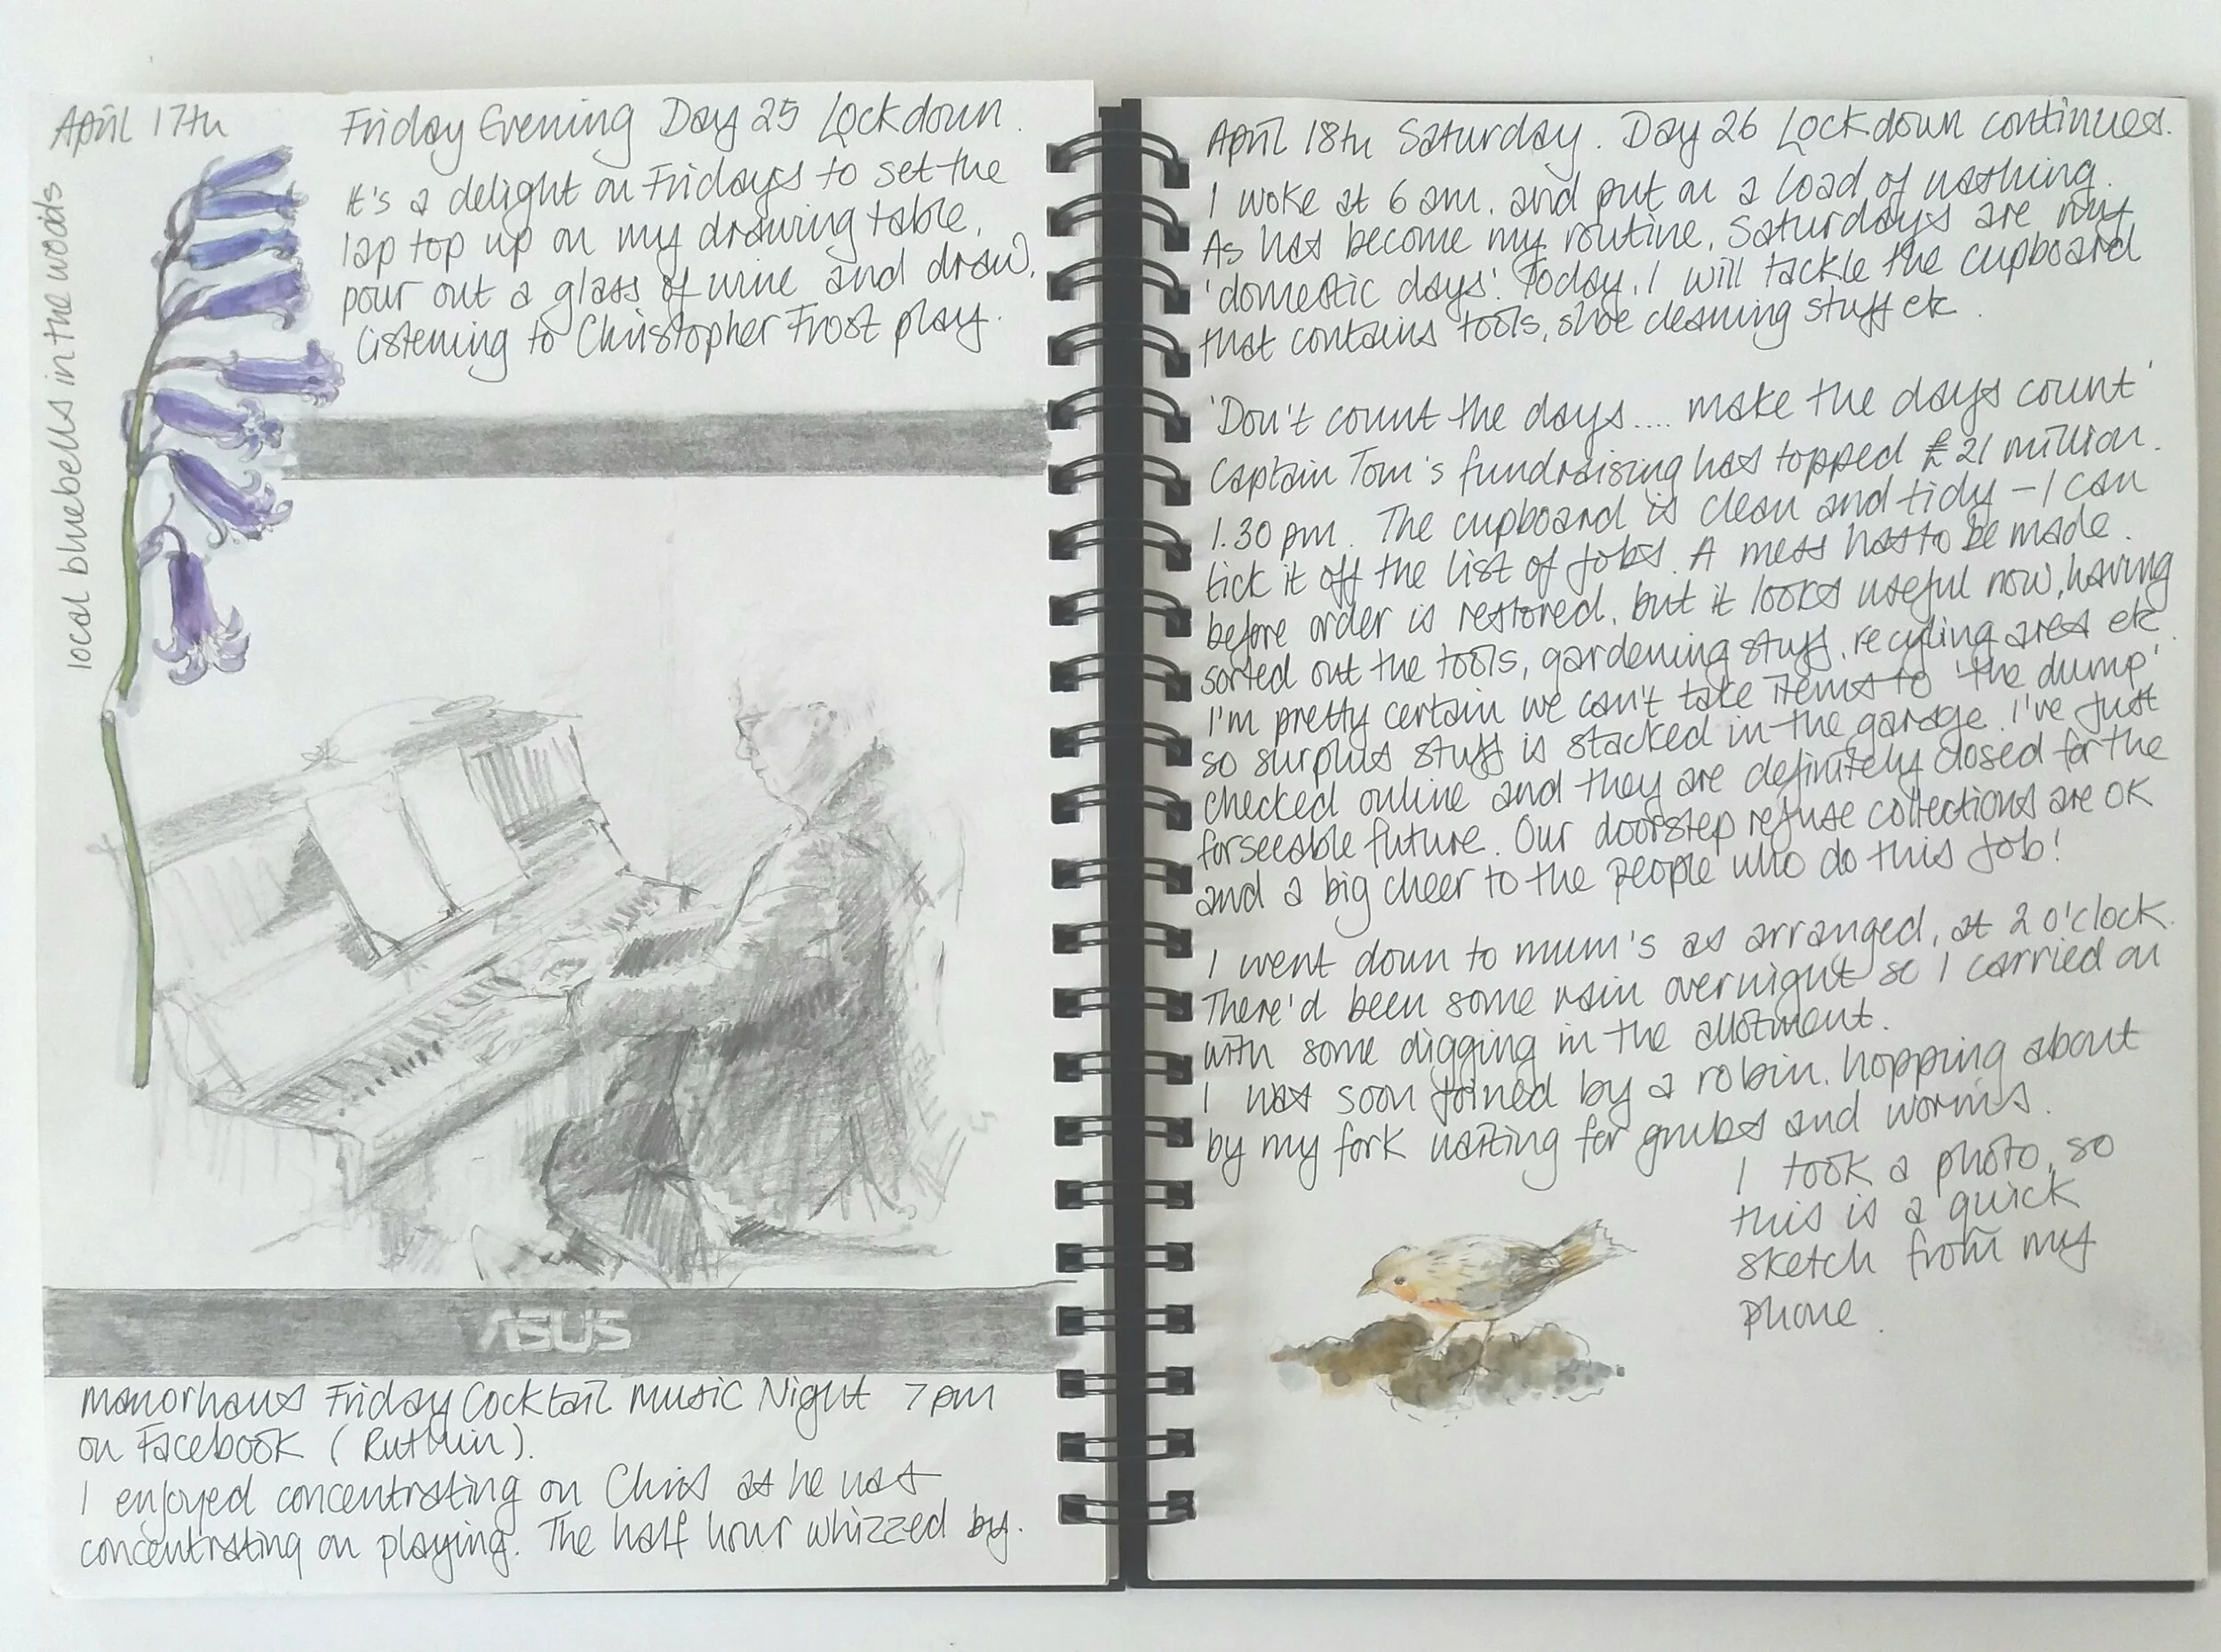 April 17th
local bluebells in the woods
Friday Evening Day 25 Lockdown.
It's a delight on Fridays to set the
lap top up on my drawing table,
pour out a glass of wine and draw,
listening to Christopher Frost play.
ASUS
Manorhaus Friday Cocktail Music Night 7pm
on Facebook (Ruthin).
I enjoyed concentrating on Chris as he was
concentrating on playing. The half hour whizzed by.
April 18th Saturday. Day 26 Lockdown continues.
I woke at 6 am. and put on a load of washing.
As has become my routine, Saturdays are my
'domestic days'. Today, I will tackle the cupboard
that contains tools, shoe cleaning stuff etc.
'Don't count the days.... make the days count'
Captain Tom's fundraising has topped £21 million.
1.30 pm. The cupboard is clean and tidy – I can
tick it off the list of jobs. A mess has to be made
before order is restored, but it looks useful now, having
sorted out the tools, gardening stuff, recycling area etc.
I'm pretty certain we can't take items to 'the dump'
so surplus stuff is stacked in the garage. I've just
checked online and they are definitely closed for the
forseeable future. Our doorstep refuse collections are OK
and a big cheer to the people who do this job!
I went down to mum's as arranged, at 2 o'clock.
There'd been some rain overnight so I carried on
with some digging in the allotment.
I was soon joined by a robin, hopping about
by my fork waiting for grubs and worms.
I took a photo, so
this is a quick
sketch from my
phone.